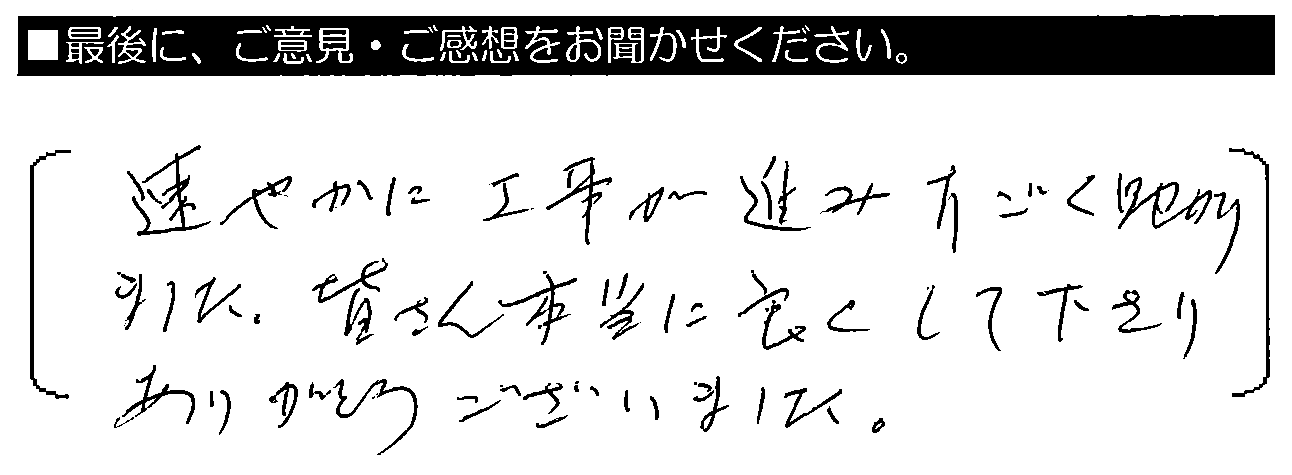 ■最後に、ご意見・ご感想をお聞かせください。
速やかに工事が進みすごく助かり
ました。皆さん本当に良くして下さり
ありがとうございました。